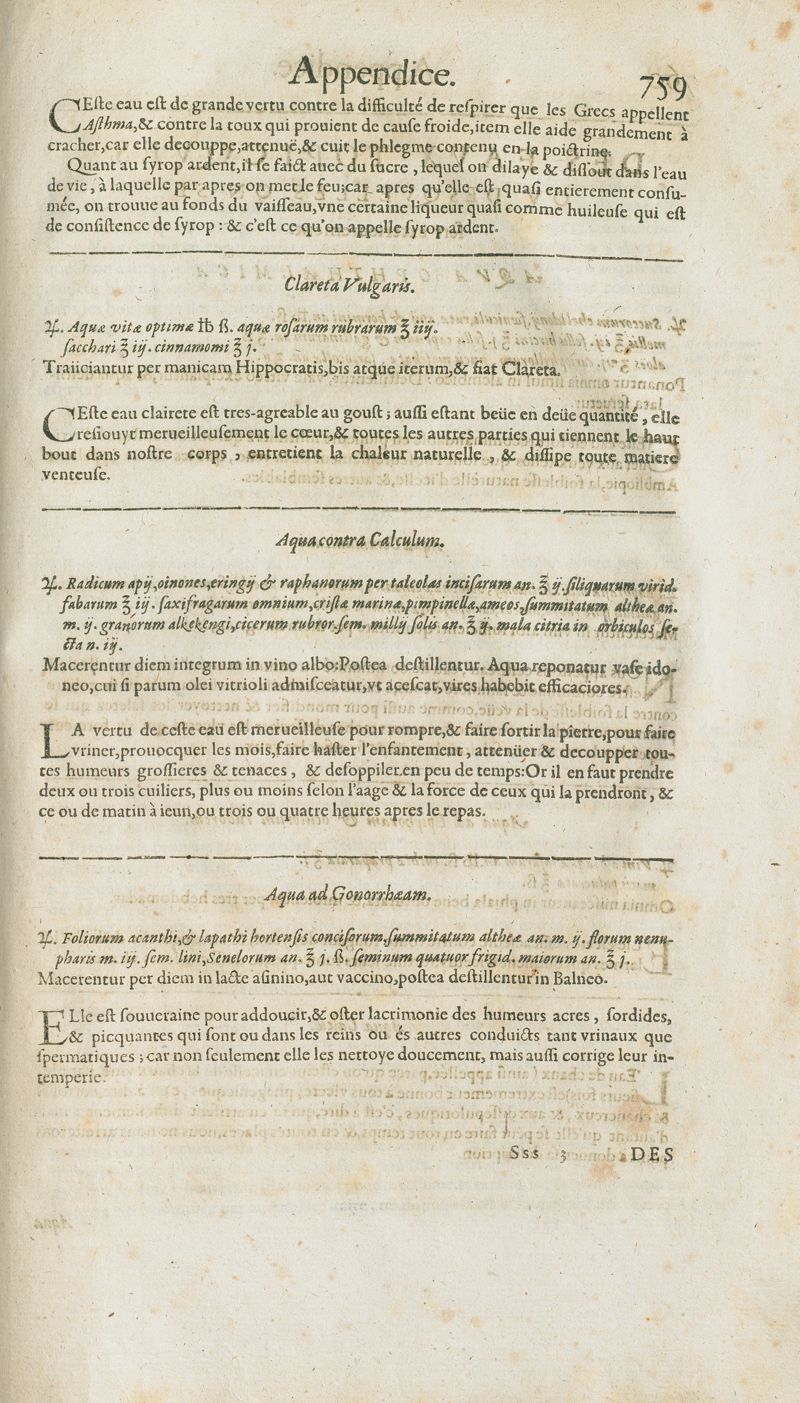 Appendice. 759
CEſte eau eſt de grande vertu contre la difficulté de reſpirer que les Grecs appellent
Aſthma,&c contre la toux qui prouient de cauſe froide,item elle aide grandement à
cracher,car elle decouppe,attenuë,& cuit le phlegme contenu en la poictrine.
Quant au ſyrop ardent,il ſe faict auec du ſucre , lequel on dilaye & diſſout dans l'eau
de vie , à laquelle par apres on met le feu;car apres qu'elle eſt quaſi entierement conſu-
mée, on trouue au fonds du vaiſſeau,vne certaine liqueur quaſi comme huileuſe qui eſt
de conſiſtence de ſyrop : & c'eſt ce qu'on appelle ſyrop ardent.
Clareta Vulgaris.
♃. Aquæ vitæ optimæ ℔ ß. aquæ roſarum rubrarum ℥ iiij.
ſacchari ℥ iij. cinnamomi ℥ j.
Traiiciantur per manicam Hippocratis,bis atque iterum,& fiat Clareta.
CEſte eau clairete eſt tres-agreable au gouſt ; auſſi eſtant beüe en deüe quantité , elle
reſiouyt merueilleuſement le cœur,& toutes les autres parties qui tiennent le haut
bout dans noſtre corps , entretient la chaleur naturelle , & diſſipe toute matiere
venteuſe.
Aqua contra Calculum.
♃. Radicum apij,oinones,eringij & raphanorum per taleolas inciſarum an. ℥ ij.ſiliquarum virid.
fabarum ℥ iij. ſaxifragarum omnium,criſtæ marinæ,pimpinellæ,ameos,ſummitatum altheæ an.
m. ij. granorum alkekengi,cicerum rubror.ſem. millij ſolis an. ℥ ij. mala citria in orbiculos ſe-
cta n. iij.
Macerentur diem integrum in vino albo:Poſtea deſtillentur. Aqua reponatur vaſe ido-
neo,cui ſi parum olei vitrioli admiſceatur,vt aceſcat,vires habebit efficaciores.
LA vertu de ceſte eau eſt merueilleuſe pour rompre,& faire ſortir la pierre,pour faire
vriner,prouocquer les mois,faire haſter l'enfantement , attenüer & decoupper tou-
tes humeurs groſſieres & tenaces , & deſoppiler en peu de temps:Or il en faut prendre
deux ou trois cuiliers, plus ou moins ſelon l'aage & la force de ceux qui la prendront , &
ce ou de matin à ieun,ou trois ou quatre heures apres le repas.
Aqua ad Gonorrhæam.
♃. Foliorum acanthi,& lapathi hortenſis conciſorum,ſummitatum altheæ an. m. ij. florum nenu-
pharis m. iij. ſem. lini,Senelorum an. ℥ j. ß. ſeminum quatuor frigid. maiorum an. ℥ j.
Macerentur per diem in lacte aſinino,aut vaccino,poſtea deſtillentur in Balneo.
ELle eſt ſouueraine pour addoucir,& oſter lacrimonie des humeurs acres , ſordides,
& picquantes qui ſont ou dans les reins ou és autres conduicts tant vrinaux que
ſpermatiques ; car non ſeulement elle les nettoye doucement, mais auſſi corrige leur in-
temperie.
Sss 3 DES